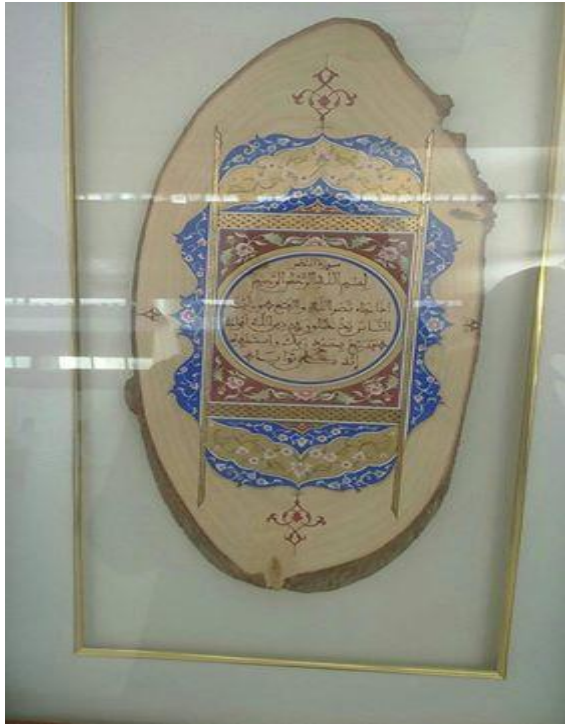 سورة النصر
بسم الله الرحمن الرحيم
اذا جاء نصر الله والفتح ورأيت
الناس يدخلون في دين الله أفواجا
فسبح بحمد ربك واستغفره
إنه كان توابا